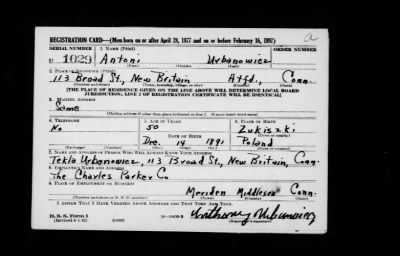 a
REGISTRATION CARD—(Men born on or after April 28, 1877 and on or before February 16, 1897)
SERIAL NUMBER 1. NAME (Print) ORDER NUMBER
U 1029 Antoni Urbanowicz
2. PLACE OF RESIDENCE (Print)
113 Broad St., New Britain Htfd., Conn.
(Number and street) (Town, township, village, or city) (County) (State)
[THE PLACE OF RESIDENCE GIVEN ON THE LINE ABOVE WILL DETERMINE LOCAL BOARD
JURISDICTION; LINE 2 OF REGISTRATION CERTIFICATE WILL BE IDENTICAL]
3. MAILING ADDRESS
Same
[Mailing address if other than place indicated on line 2. If same insert word same]
4. TELEPHONE 5. AGE IN YEARS 6. PLACE OF BIRTH
No 50 Zukiszki
DATE OF BIRTH (Town or county)
Dec. 14 1891 Poland
(Exchange) (Number) (Mo.) (Day) (Yr.) (State or country)
7. NAME AND ADDRESS OF PERSON WHO WILL ALWAYS KNOW YOUR ADDRESS
Tekla Urbanowicz, 113 Broad St., New Britain, Conn.
8. EMPLOYER'S NAME AND ADDRESS
The Charles Parker Co
9. PLACE OF EMPLOYMENT OR BUSINESS
Meriden Middlesex Conn.
(Number and street or R. F. D. number) (Town) (County) (State)
I AFFIRM THAT I HAVE VERIFIED ABOVE ANSWERS AND THAT THEY ARE TRUE.
D. S. S. Form 1
(Revised 4-1-42)
Anthony Urbanowicz